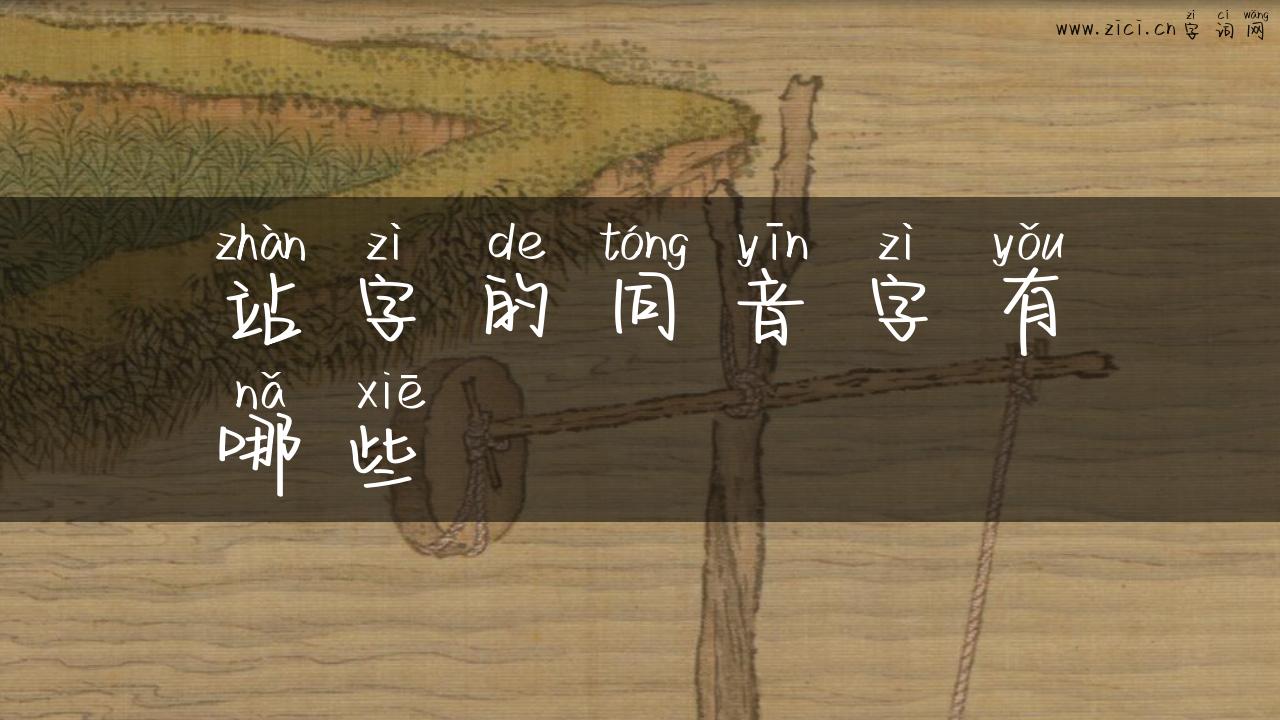 zì cí wǎng
www.zici.cn 字词网
zhàn zì de tóng yīn zì yǒu
站字的同音字有
nǎ xiē
哪些